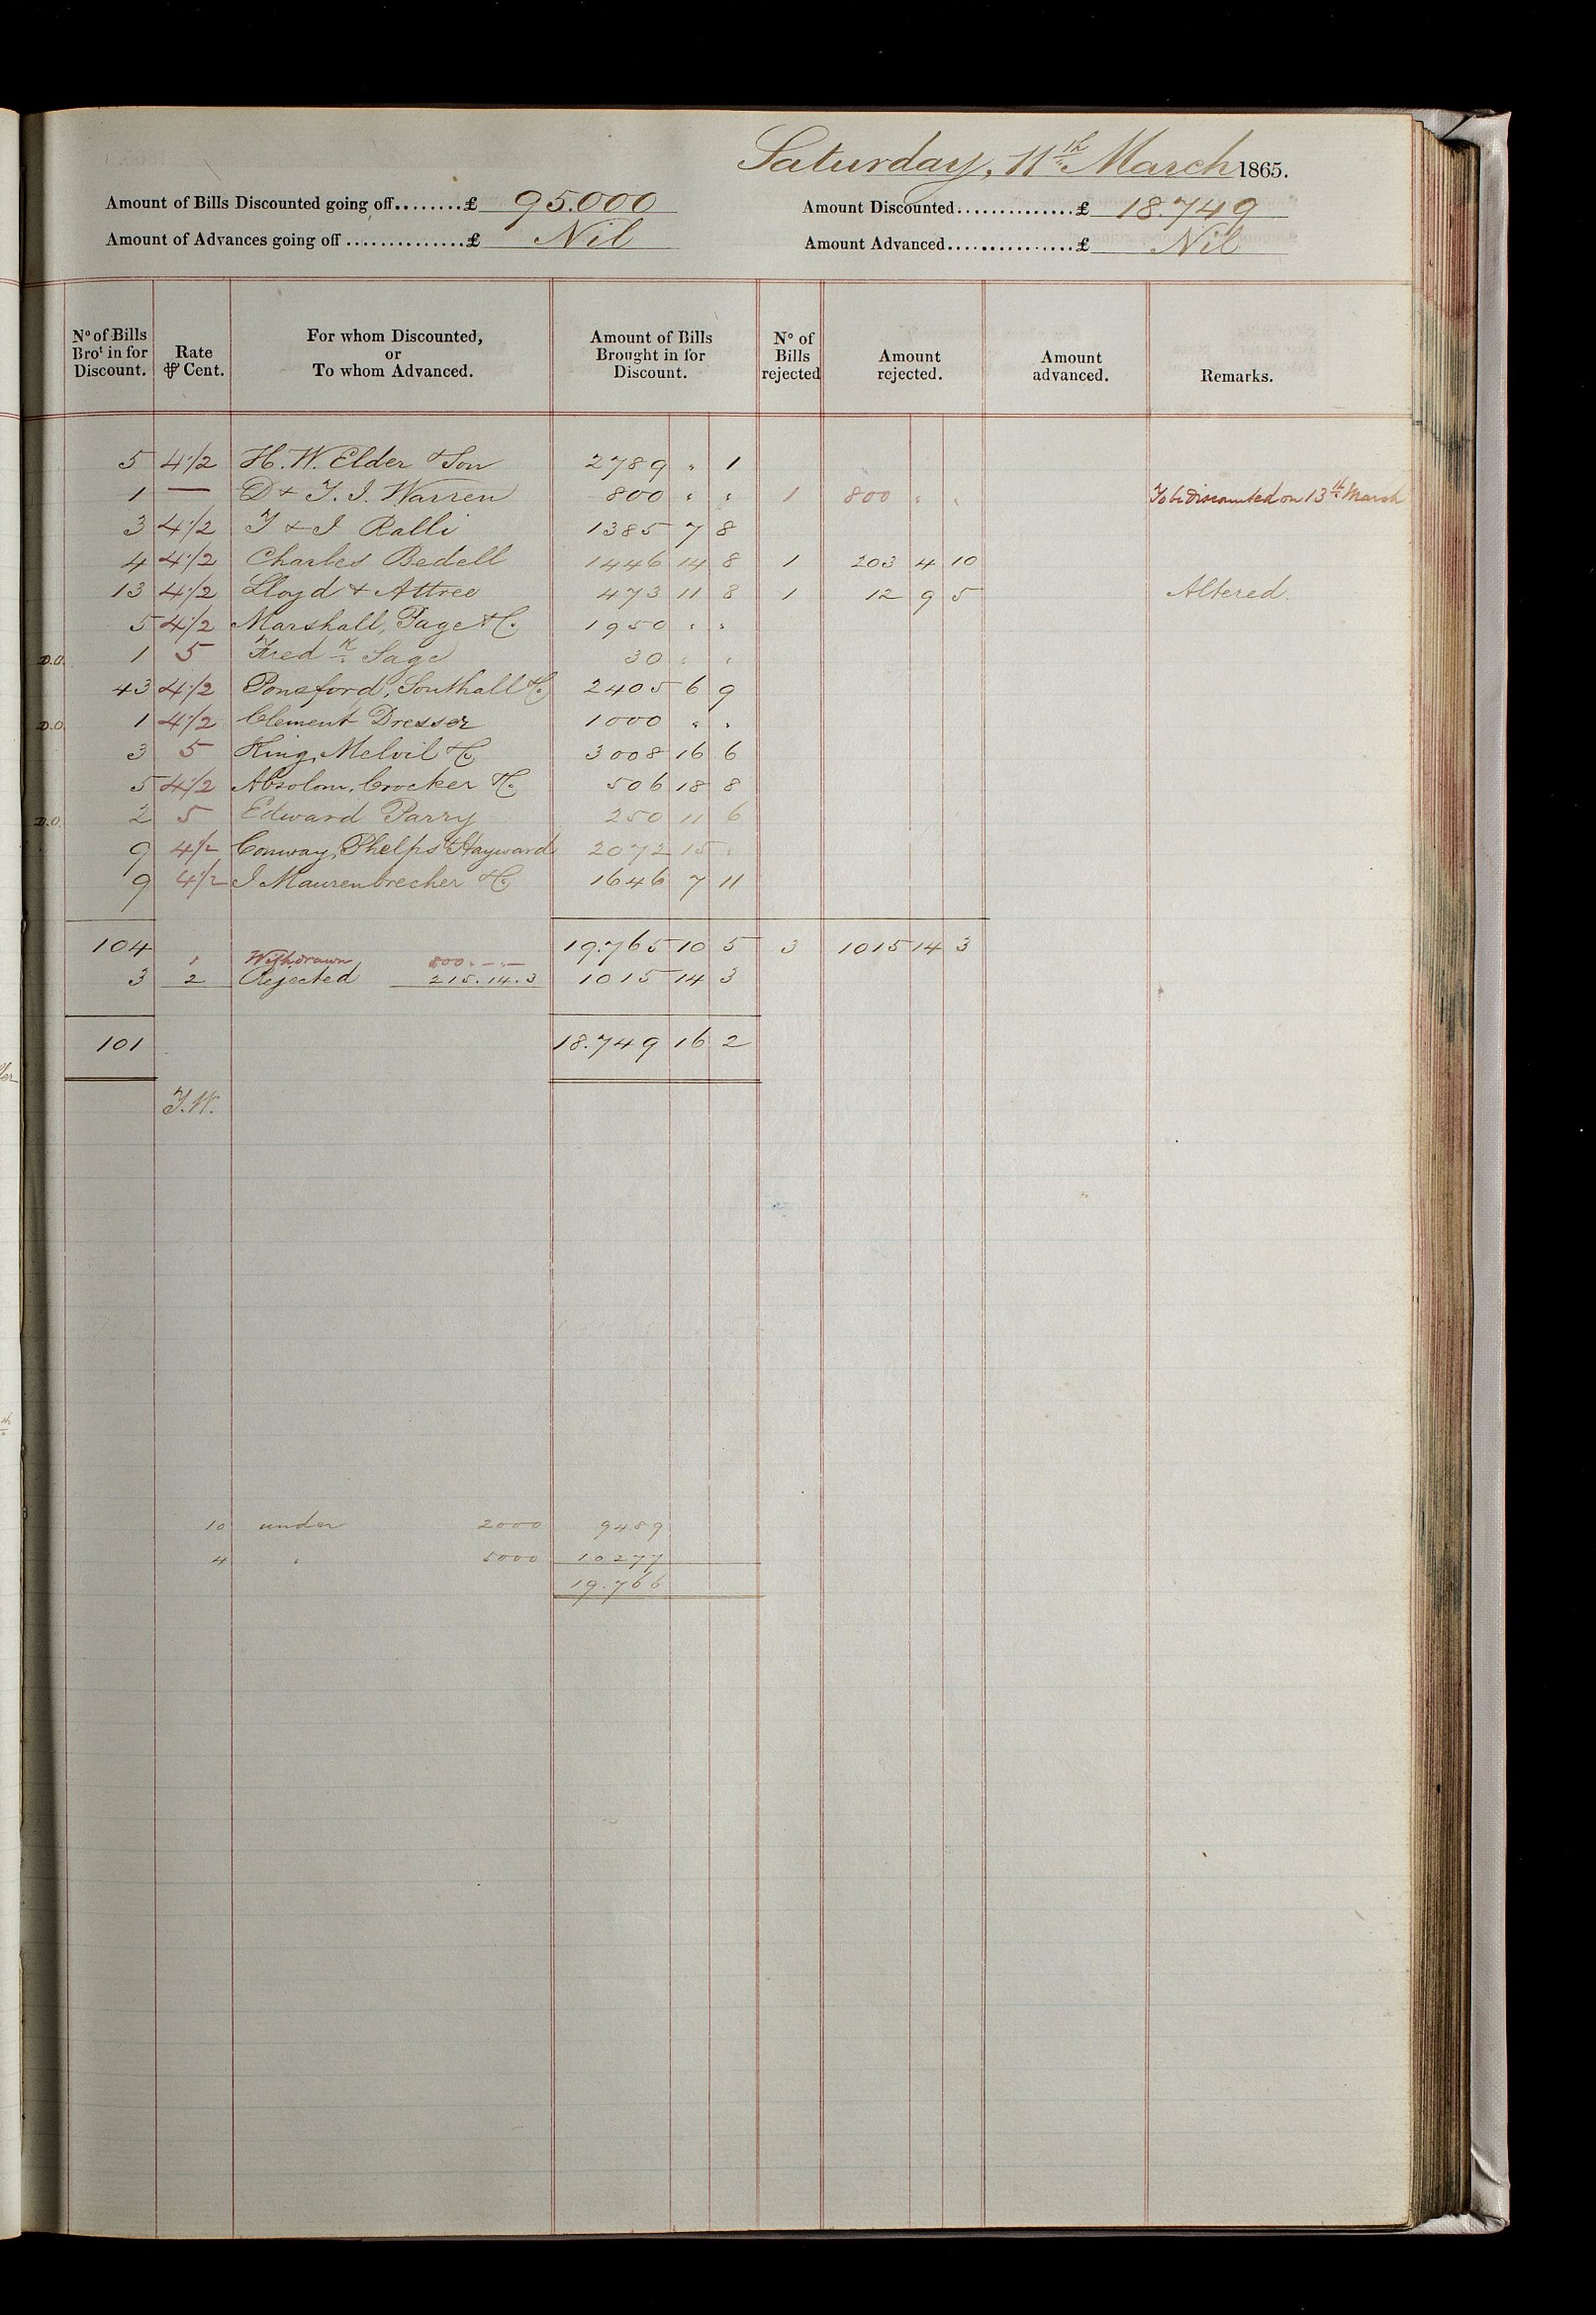 Saturday, 11th March 1865.
Amount of Bills Discounted going off........£ 95.000
Amount Discounted..............£ 18.749
Amount of Advances going off..............£ Nil
Amount Advanced...............£ Nil
No of Bills Brot in for Discount. Rate ⅌ Cent. For whom Discounted, or To whom Advanced. Amount of Bills Brought in for Discount. No of Bills rejected Amount rejected. Amount advanced. Remarks.
5 4 1/2 H. W. Elder & Son 2789 " 1
1 — D & T. I. Warren 800 " " 1 800 " " To be discounted on 13th March
3 4 1/2 T & I Ralli 1385 7 8
4 4 1/2 Charles Bedell 1446 14 8 1 203 4 10
13 4 1/2 Lloyd & Attree 473 11 8 1 12 9 5 Altered.
5 4 1/2 Marshall, Page & Co. 1950 " "
D.O. 1 5 Fredk Sage 30 " "
43 4 1/2 Ponsford, Southall & Co. 2405 6 9
D.O. 1 4 1/2 Clement Dresser 1000 " "
3 5 King, Melvil & Co. 3008 16 6
5 4 1/2 Absolom, Crocker & Co. 506 18 8
D.O. 2 5 Edward Parry 250 11 6
9 4 1/2 Conway, Phelps & Hayward 2072 15 "
9 4 1/2 I Maurenbrecher & Co. 1646 7 11
104 19.765 10 5 3 1015 14 3
1 Withdrawn 800. — . —
3 2 Rejected 215. 14. 3 1015 14 3
101 18.749 16 2
T.W.
10 under 2000 9489
4 " 5000 10277
19.766